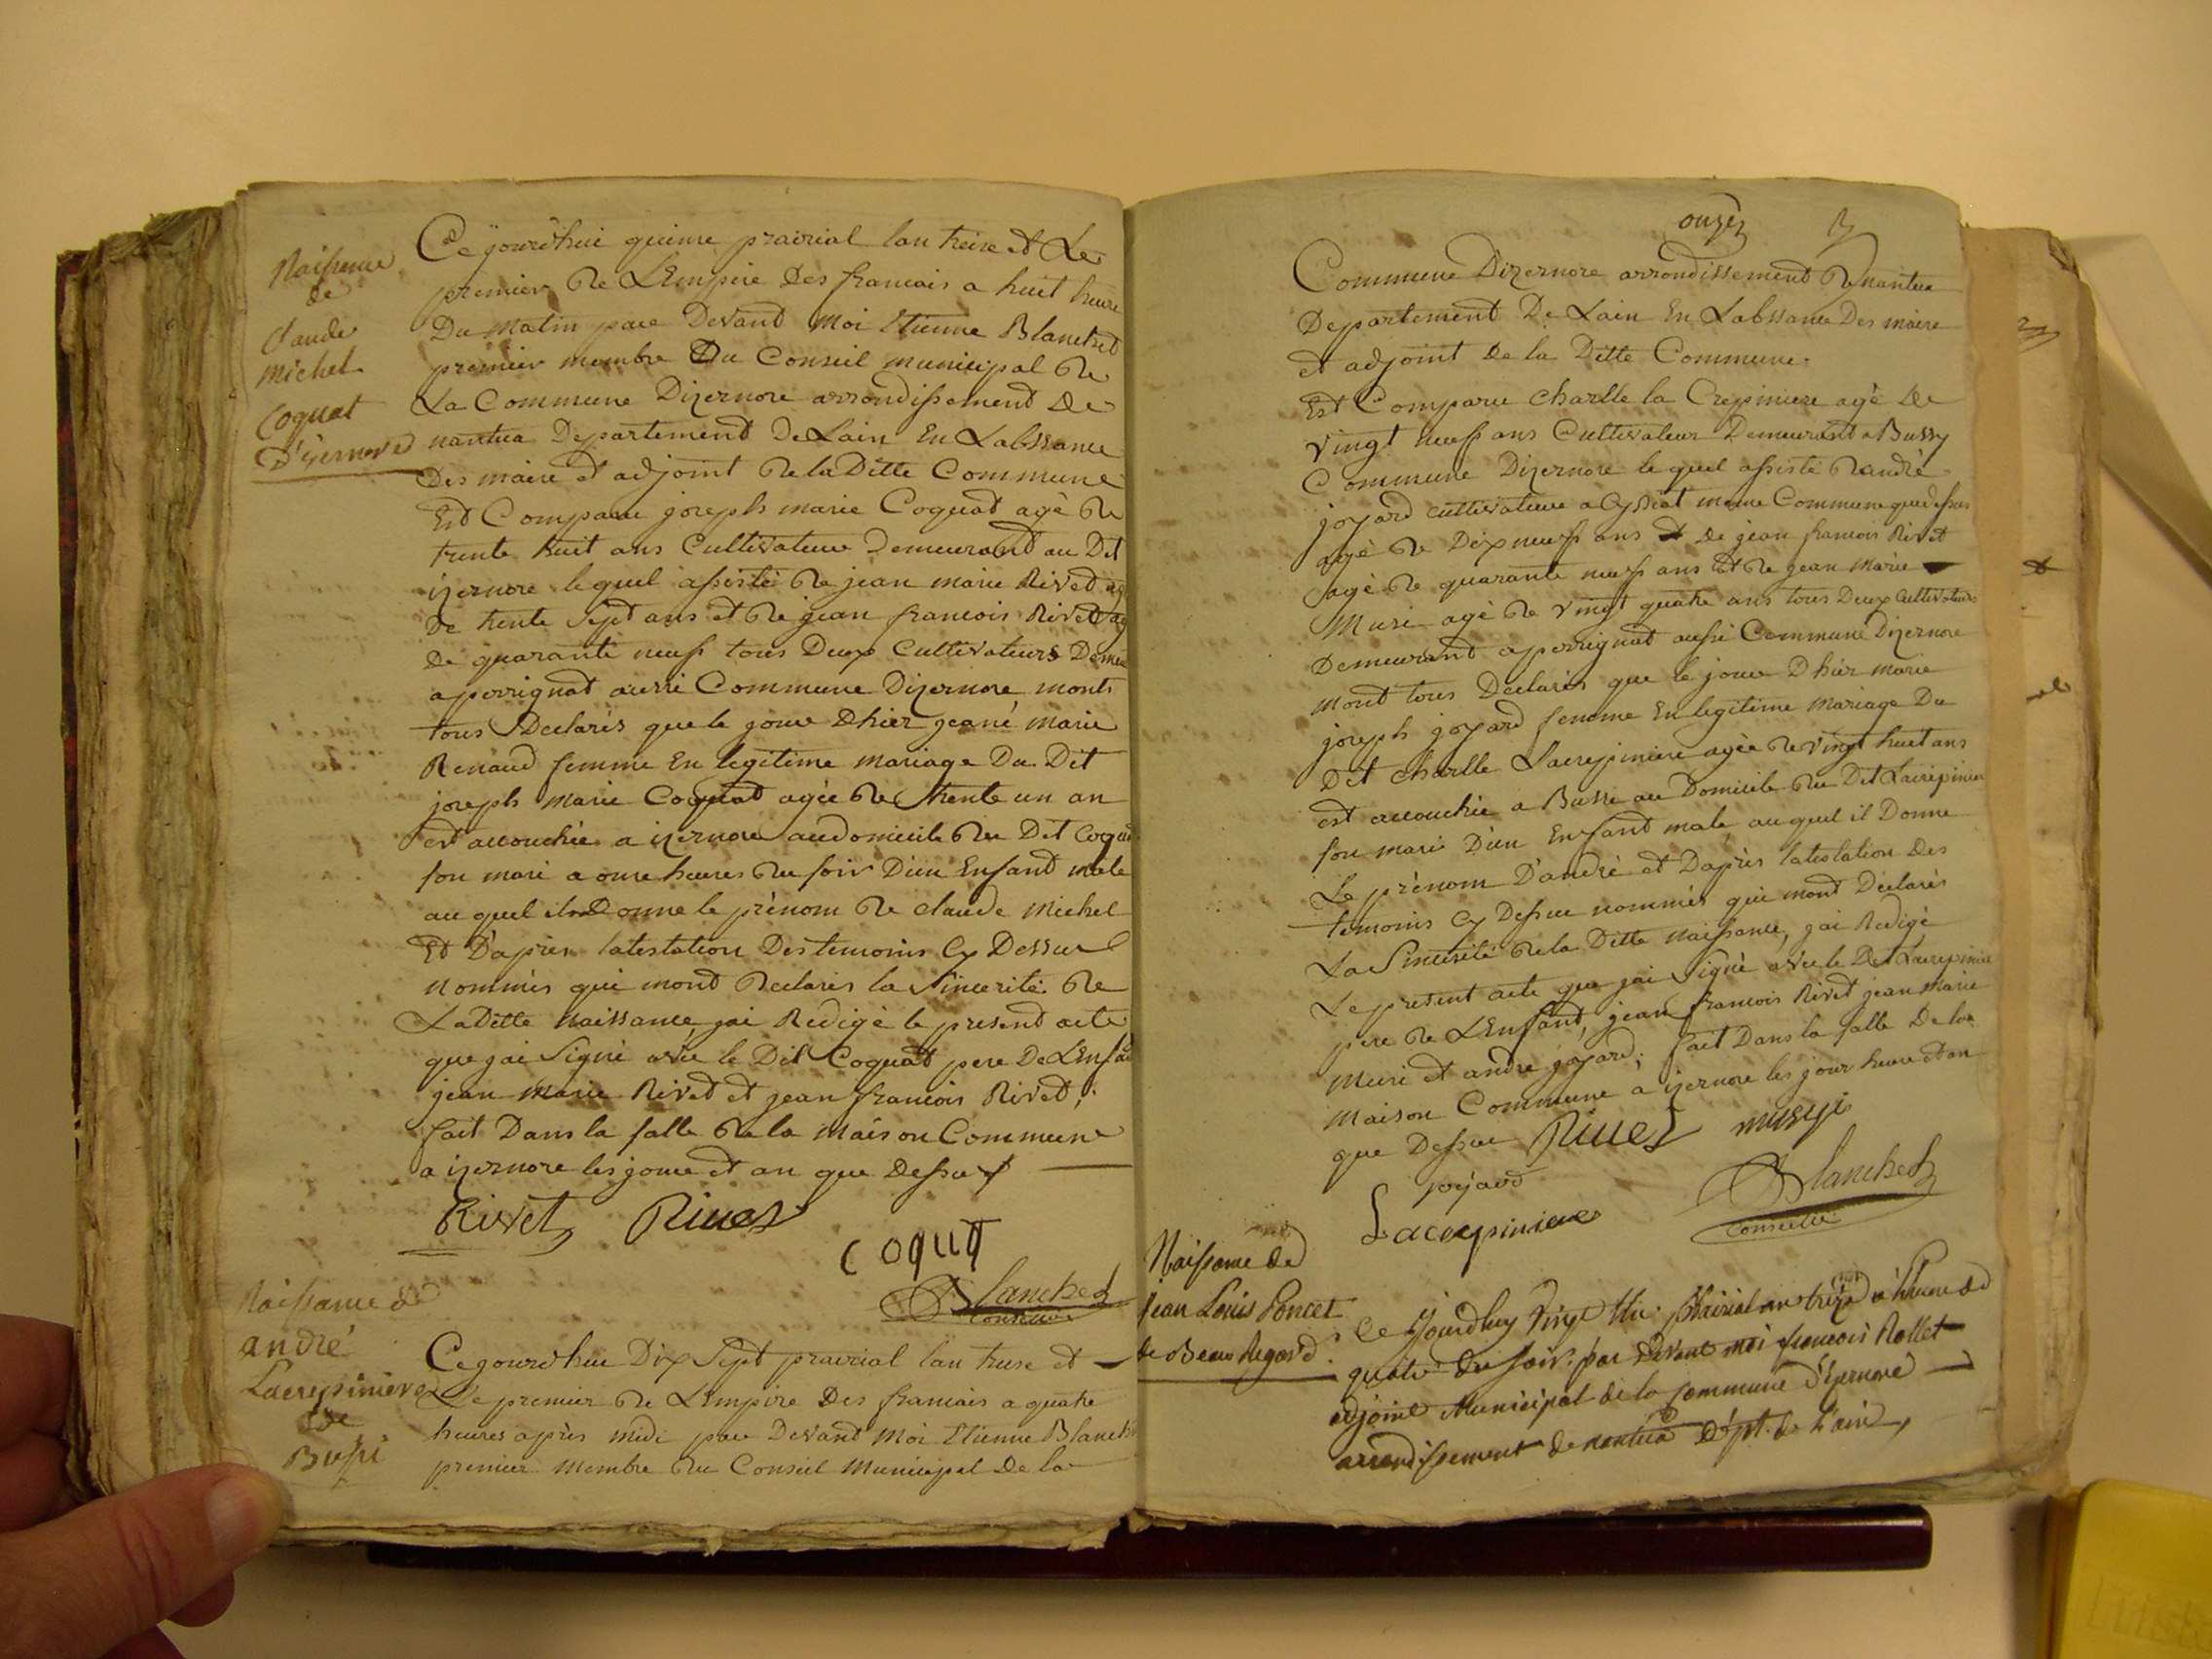 Naissance
de
Claude
michel
Coquat
D'izernore
Ce jourd'hui quinze prairial lan treize et Le
premier De L'Empire Des francais a huit heure
Du Matin pare Devand Moi Etienne Blanchet
premier membre Du Conseil municipal De
La Commune Dizernore arrondissement De
nantua Departement De Lain En Labssance
Des maire et adjoint De la Ditte Commune
Est Comparu joseph marie Coquat agé De
trente huit ans Cultivateur Demeurand au Dit
izernore le quel assisté De jean marie Rivet ag
De trente sept ans et De jean francois Rivet ag
De quarante neuf tous Deux Cultivateurs Demeu
a perrignat aussi Commune Dizernore monts
tous Declarés que le jour Dhier jeane marie
Renaud femme En legitime mariage Du Dit
joseph Marie Coquat agée De trente un an
est accouchée a izernore au domicile Du Dit Coquat
son mari a onze heures Du soir D'un Enfant male
au quel il Donne le prénom De claude Michel
Et D'après latestation Des temoins Cy Dessus
Nommés qui mond Declarés la Sincerité De
La Ditte Naissance, jai Redigé le present acte
que jai Signé avec le Dit Coquat pere De L'Enfan
jean Marie Rivet et jean francois Rivet ;
fait Dans la salle De la Maison Commune
a izernore les jour et an que Dessus
Rivet Rivet
COQUT
Blanchet
Conseiller
Naissance de
andré
Lacrepiniere
de
Bussi
Ce jourd'hui Dix Sept prairial lan treise et
Le premier De L'Empire Des francais a quatre
heures après midi pare Devand Moi Etienne Blanch
premier Membre Du Conseil Municipal De la
onze
Commune Dizernore arrondissement De nantua
Departement De Lain En Labssance Des maire
et adjoint De la Ditte Commune.
Est Comparu Charlle la Crepiniere agé De
vingt neuf ans Cultivateur Demeurant a Bussy
Commune Dizernore le quel assisté D'andré
joyard cultivateur a Cyssiat meme Commune que dessus
agé De Dix neuf ans et De jean francois Rivet
agé De quarante neuf ans et De jean Marie
Musi agé De vingt quatre ans tous Deux Cultivateurs
Demeurand a perrignat aussi Commune Dizernore
Mont tous Declarés que le jour D'hier marie
joseph joyard femme En legitime Mariage Du
Dit Charlle Lacrepiniere agée De vingt huit ans
est accouchée a Bussi au Domicile Du Dit Lacrepinier
son mari D'un Enfant male, au quel il Donne
Le prénom D'andré et D'après latestation Des
temoins Cy Dessus nommés qui mond Déclarés
La Sincerité De la Ditte Naissance, jai Redigé
Le present acte que jai Signé avec le Dit Lacrepinie
pere De L'Enfant, jean francois Rivet jean Marie
Musi et andré joyard; fait Dans la salle De la
Maison Commune a izernore les jour heure et an
que Dessus Rivet musyi
joyard
Lacrepiniere
Blanchet
Conseiller
Naissance de
jean Louis Poncet
de Beau Regard
Ce jourdhuy Vingt Un prairial an treize a l'heure de
quatre du soir. par devant moi francois Rollet
adjoint Municipal de la Commune d'izernore
arrondissement de nantua dépt. de L'ain,